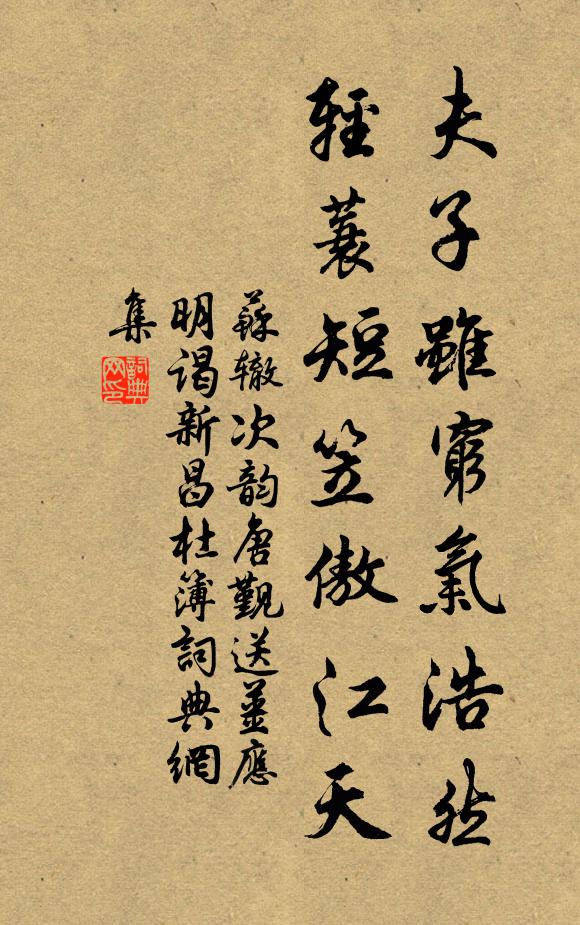 夫子雖窮氣浩然
輕蓑短笠傲江天
蘇轍次韵唐覲送薑應
明謁新昌杜簿詞典網
集
詞典
网印